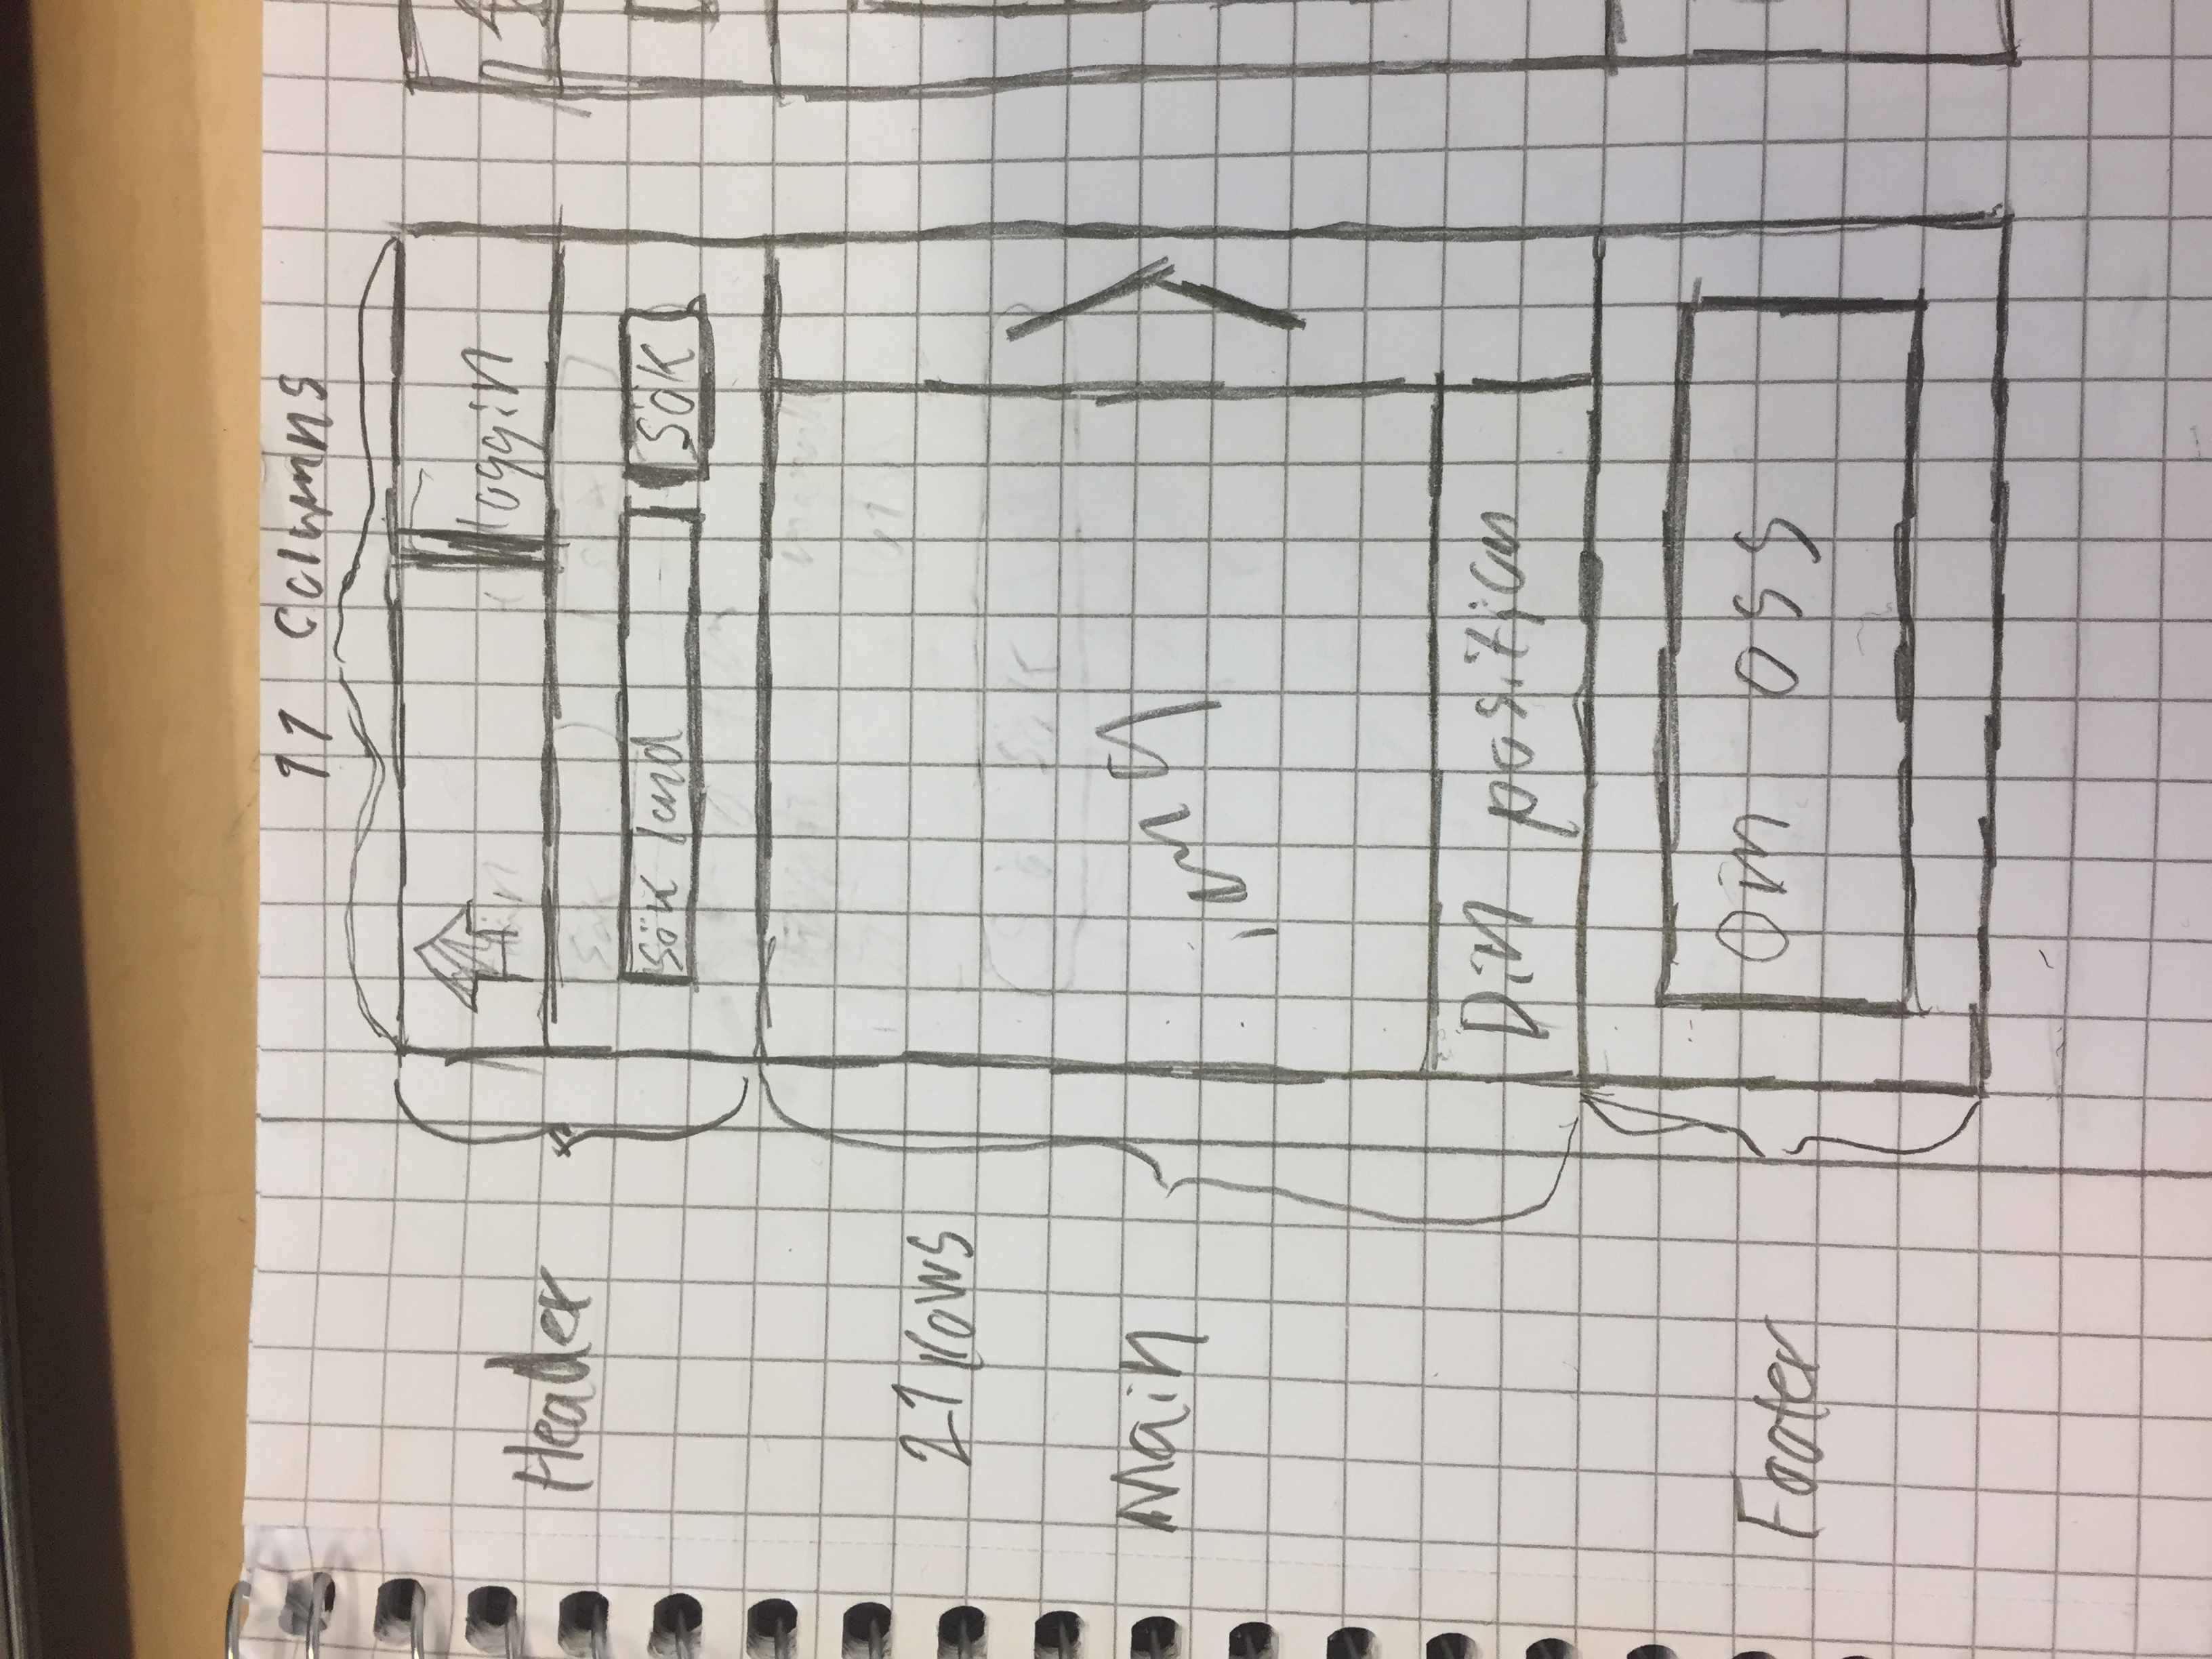 11 Columns
Header
loggin
sök land
sök
21 rows
Main
img
Din position
Footer
Om oss